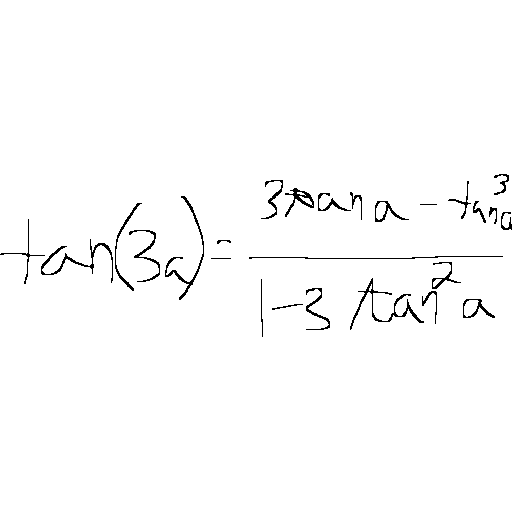 tan(3a) = \frac{3 tan a - tan^3 a}{1 - 3 tan^2 a}